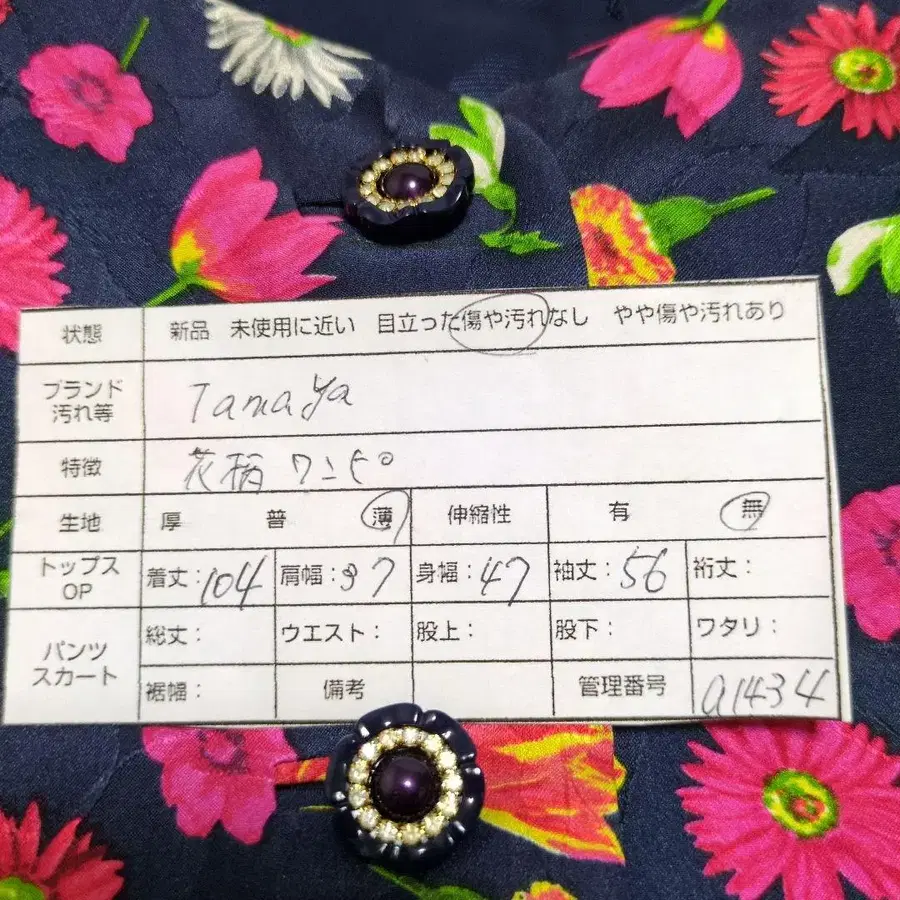 状態 新品 未使用に近い 目立った傷や汚れなし やや傷や汚れあり
ブランド 汚れ等 Tamaya
特徴 花柄 ワンピ
生地 厚 普 薄 伸縮性 有 無
トップス OP 着丈:104 肩幅:37 身幅:47 袖丈:56 裄丈:
パンツ スカート 総丈: ウエスト: 股上: 股下: ワタリ:
裾幅: 備考 管理番号 a1434